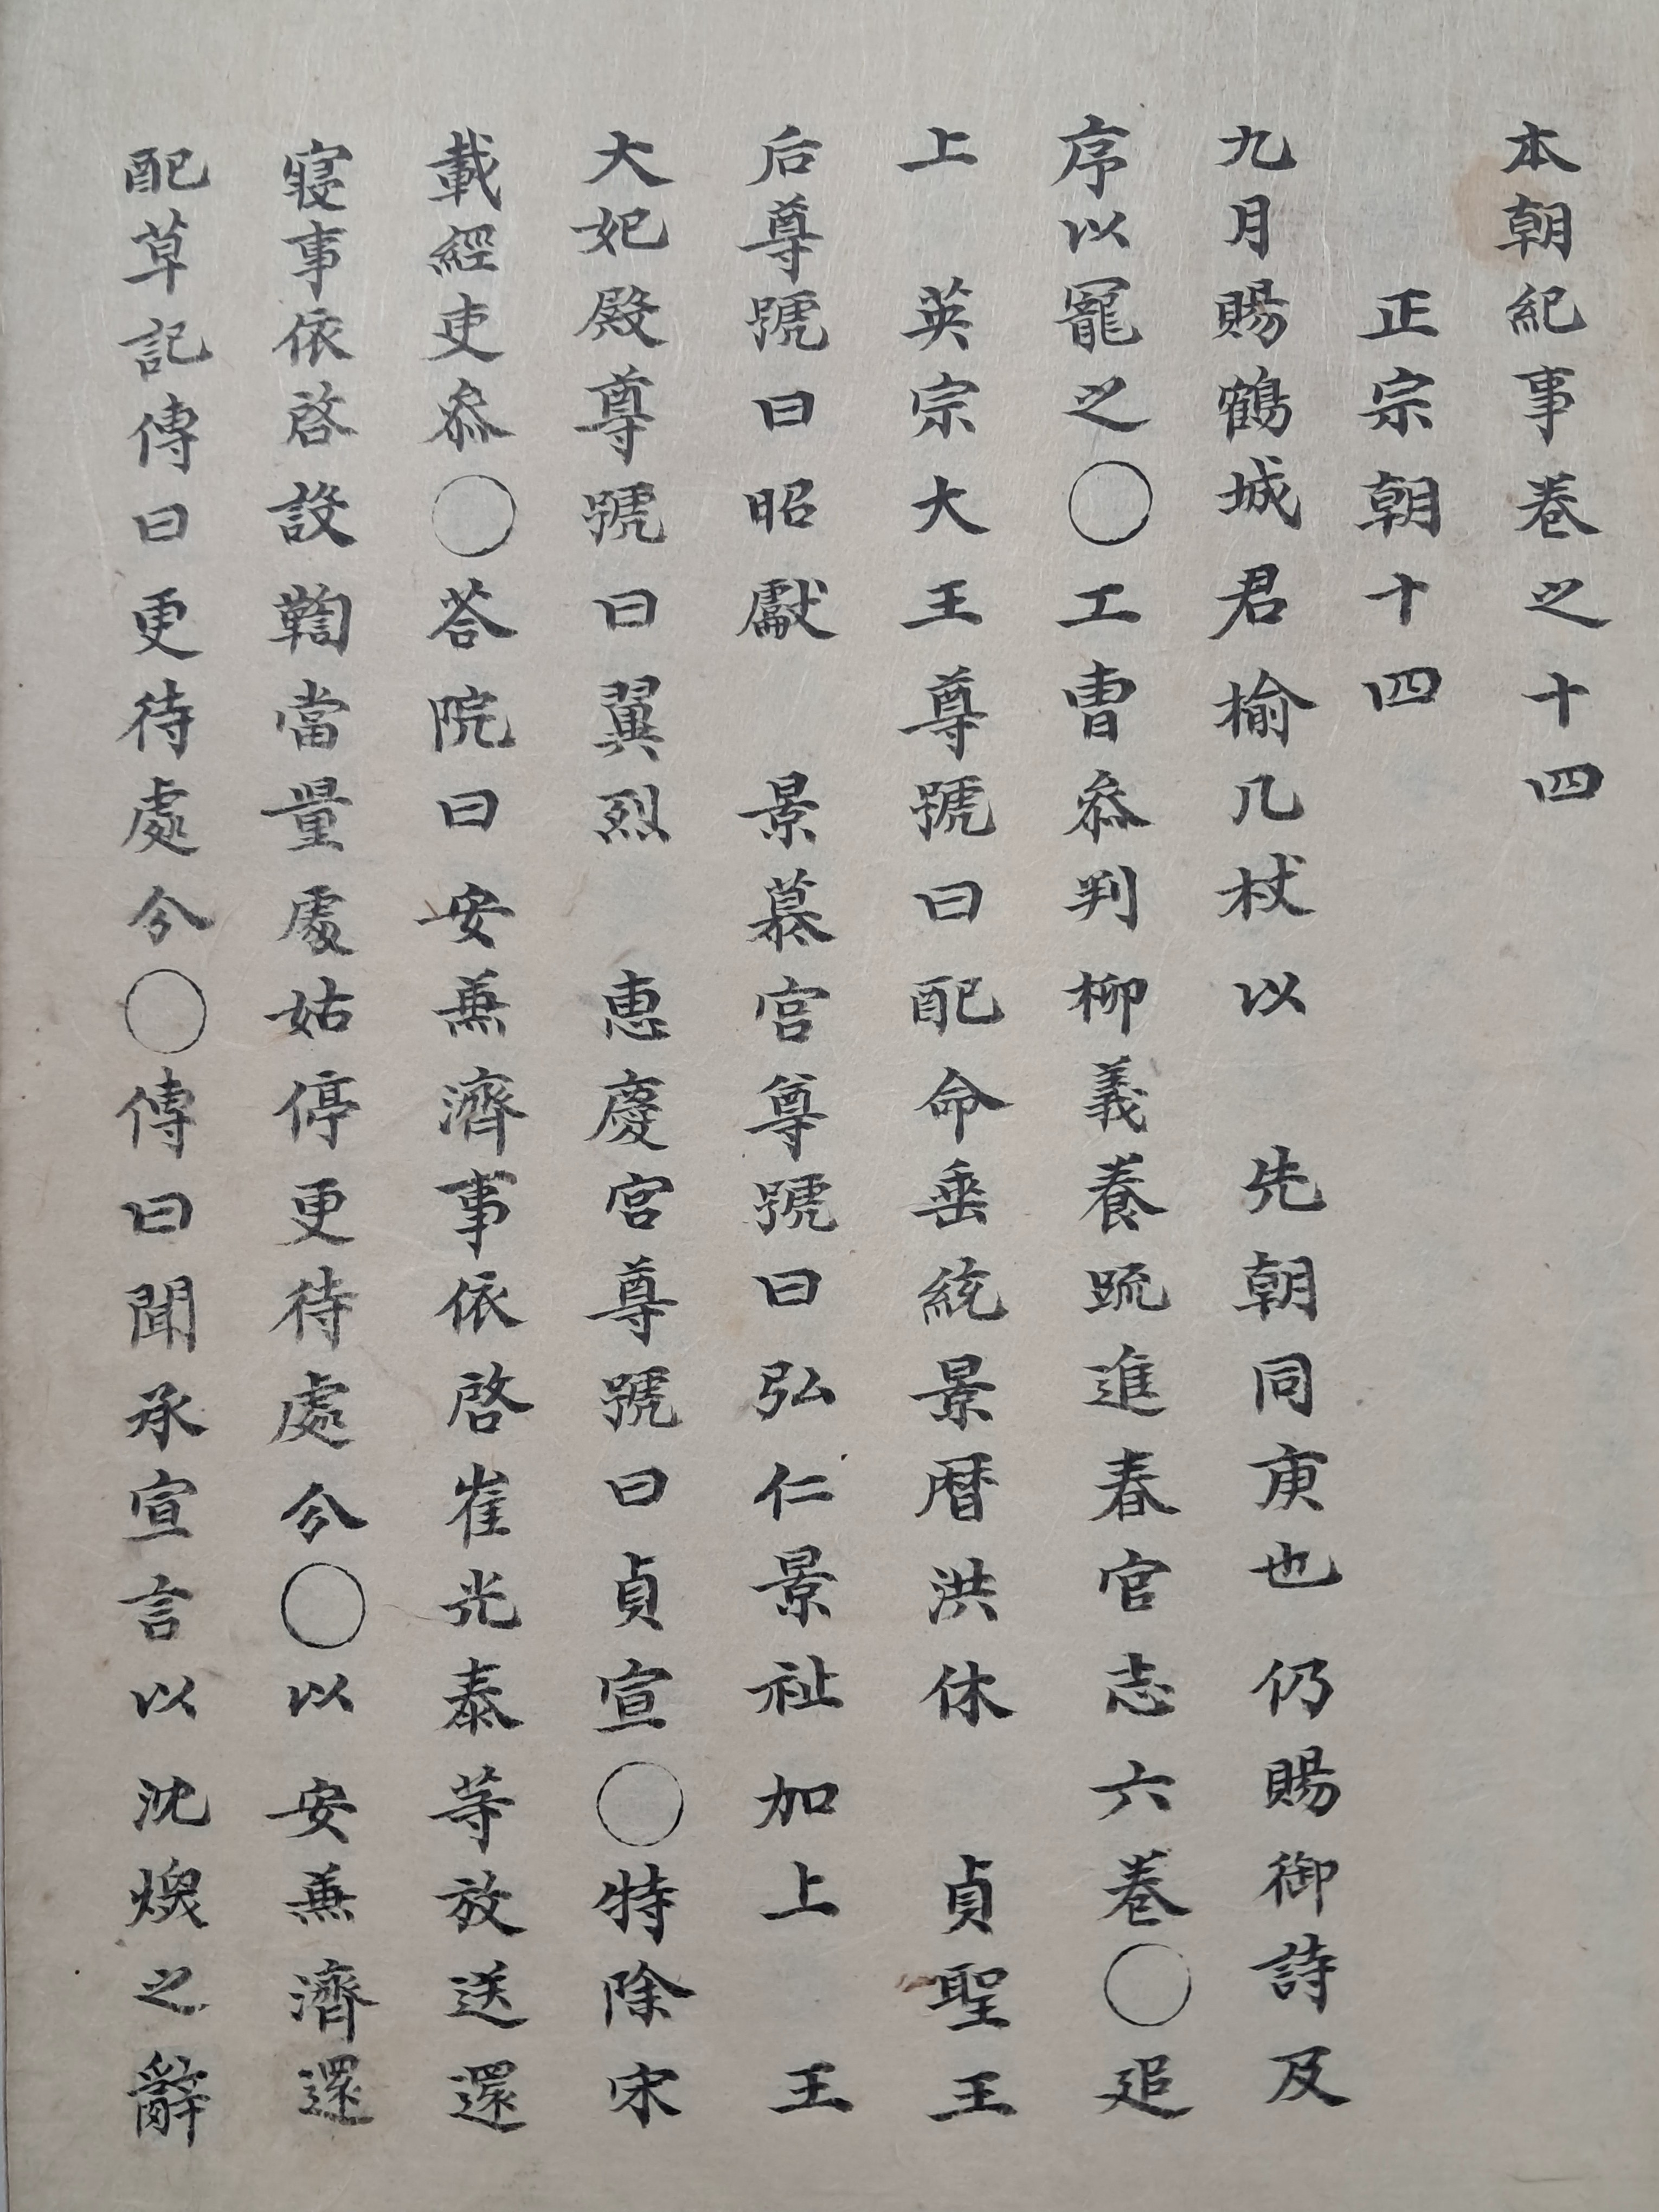 本朝紀事卷之十四
正宗朝十四
九月賜鶴城君楡几杖以　先朝同庚也仍賜御詩及
序以寵之○工曹叅判柳義養䟽進春官志六卷○追
上　英宗大王尊號曰配命垂統景曆洪休　貞聖王
后尊號曰昭獻　景慕宮尊號曰弘仁景祉加上　王
大妃殿尊號曰翼烈　惠慶宮尊號曰貞宣○特除宋
載經吏叅○荅院曰安兼濟事依啓崔光泰等放送還
寢事依啓設鞫當量處姑停更待處分○以安兼濟還
配草記傳曰更待處分○傳曰聞承宣言以沈煥之辭